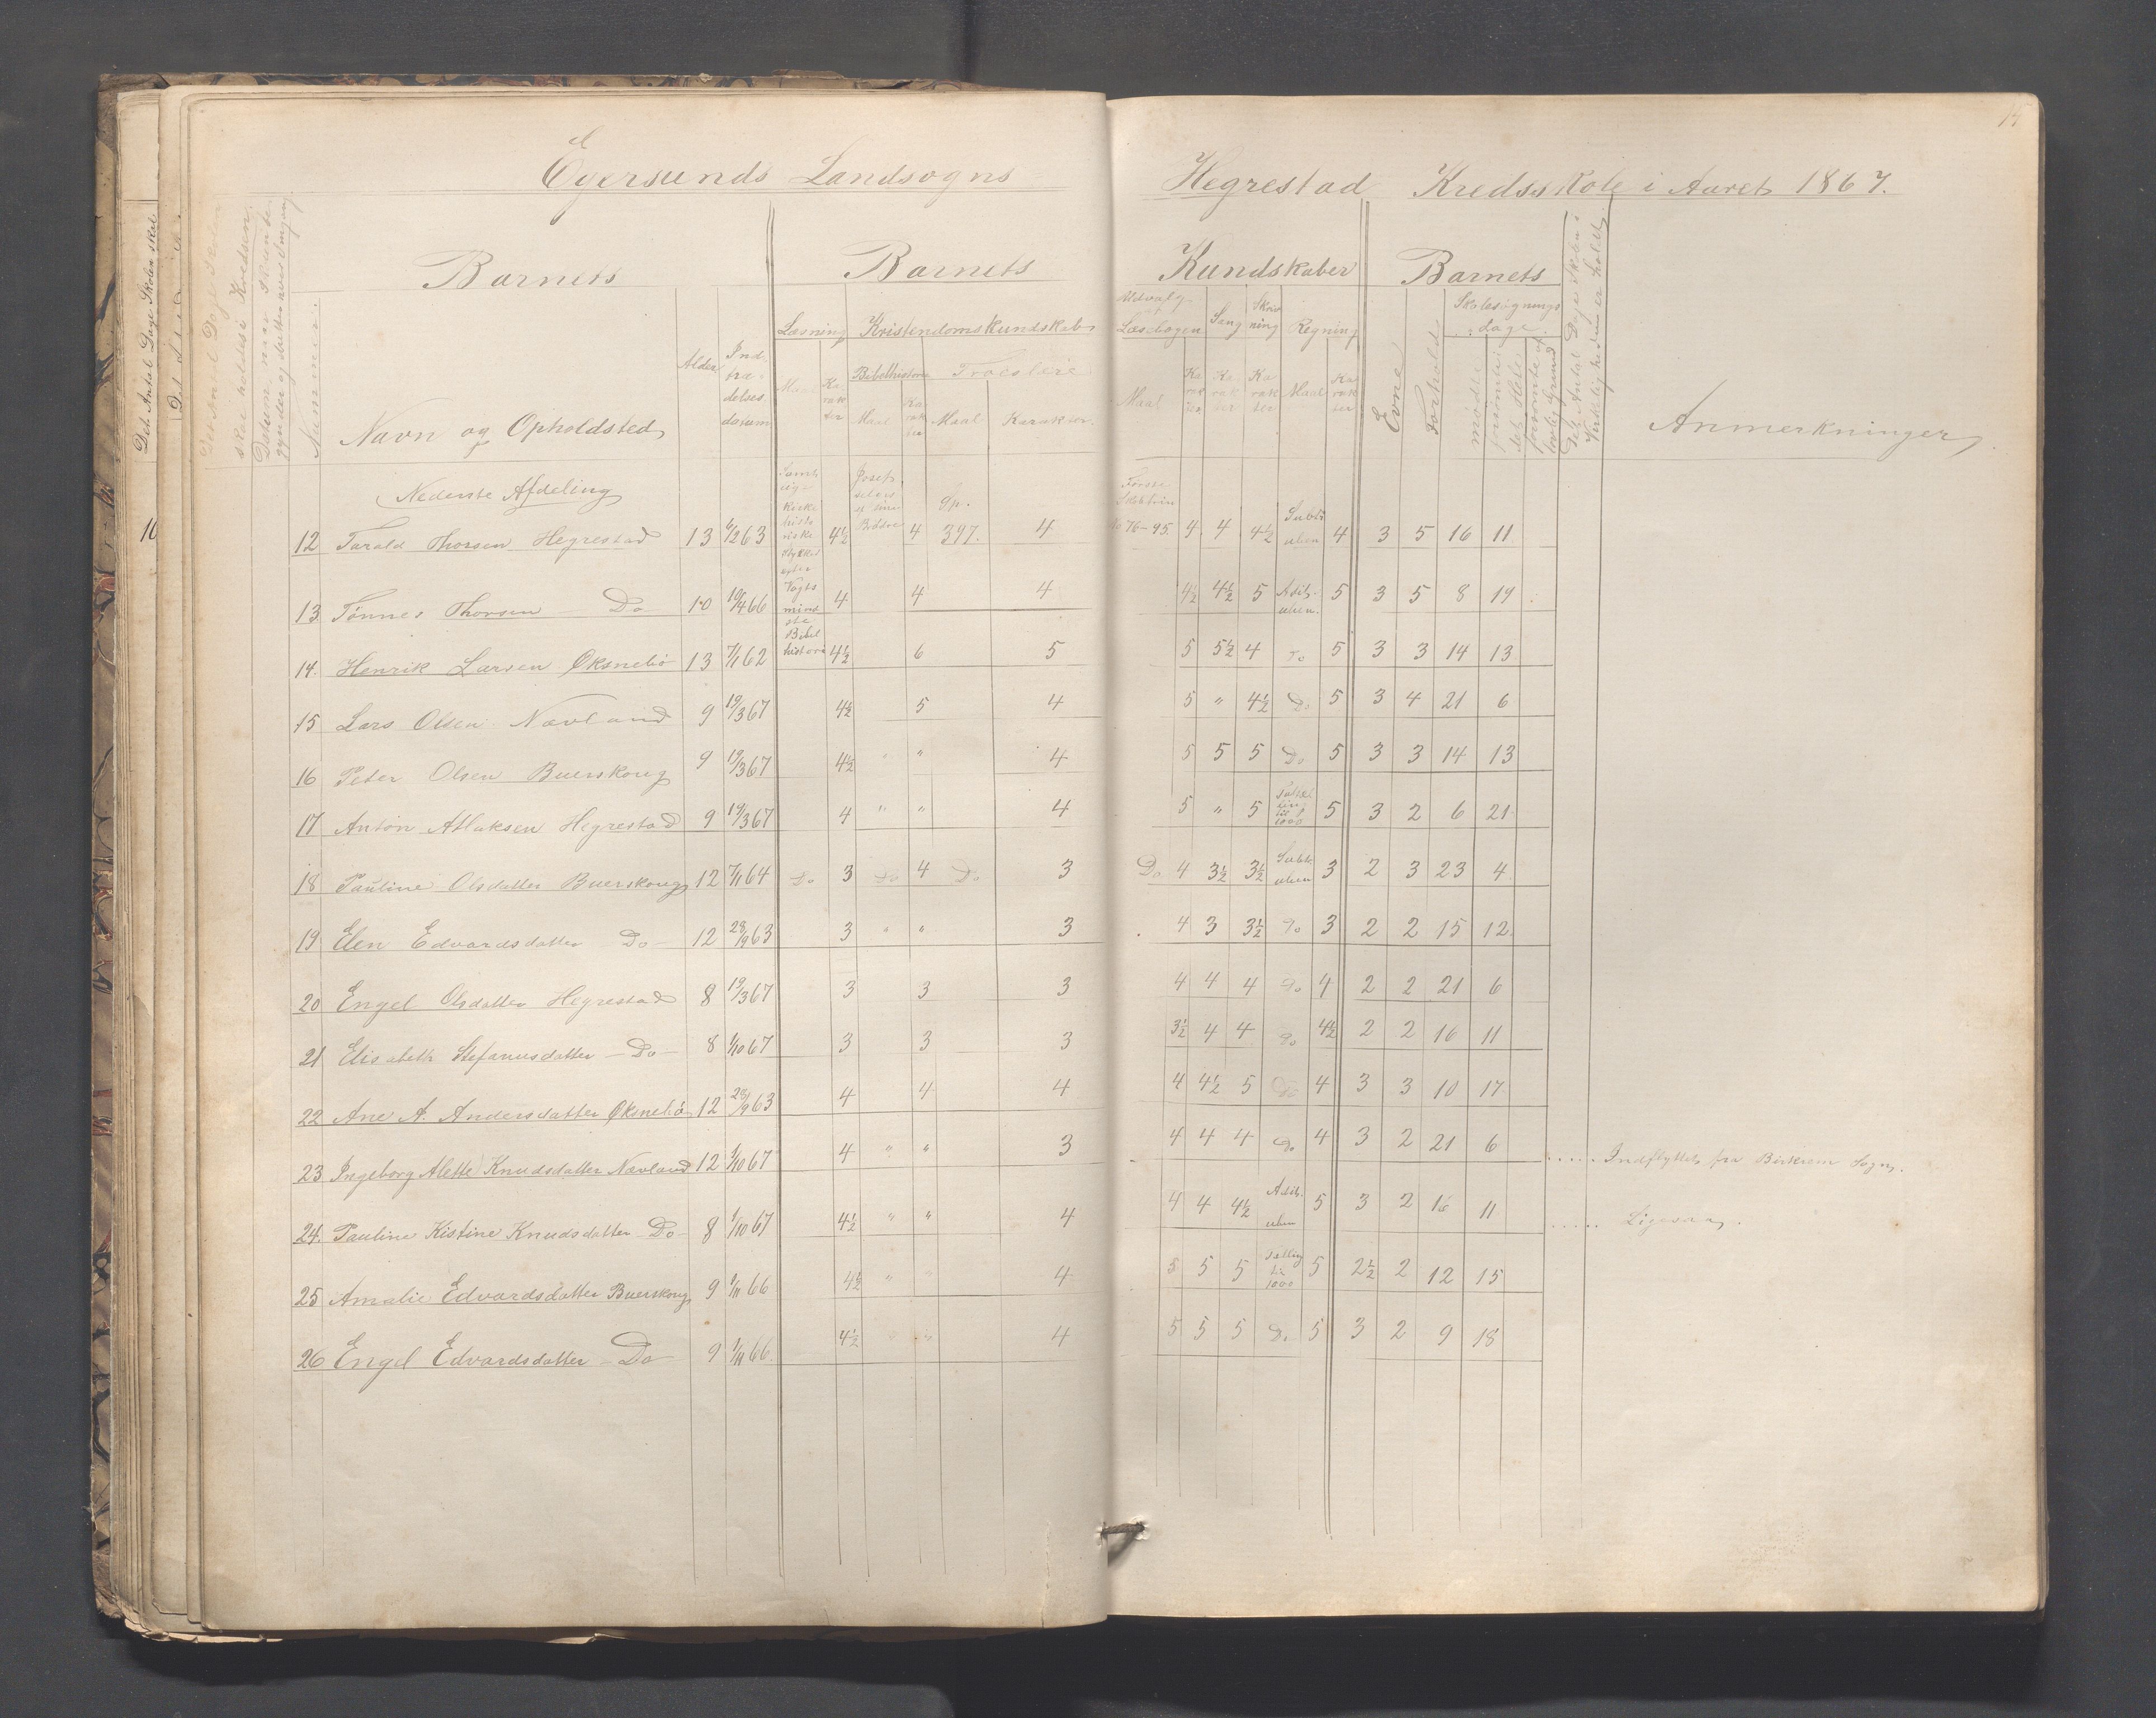 Egersunds Landsogns Hegrestad Kredsskole i Aaret 1867.
Det Antal Dage Skolen skal
10
skal holdes i Kredsen.
Nummer.
Barnets
Navn og Opholdsted
Alder.
Ind-
træ-
delses
datum
Barnets Kundskaber
Læsning
Maal
Ka-
rak
ter
Kristendomskundskab
Bibelhistorie
Maal
Ka
rak
ter
Troeslære
Maal
Karakter.
Udvalg
Læsebogen
Maal
Ka
rak
ter
Sang
Ka
rak
ter
Skriv
ning
Ka
rak
ter
Regning
Maal
Ka
rak
ter
Barnets
Evne
Forhold
Skolesøgnings
Dage.
mødte
forsømte i
det Hele
forsømte af
lovlig Grund
Det Antal Dage Skolen i
Virkeligheden er holdt.
Anmerkninger
Nederste Afdeling
12 Tarald Thorsen Hegrestad 13 63 4½ 4 397. 4 No 76-95. 4 4 4½ 4 3 5 16 11
13 Tønnes Thorsen Do 10 10/4 66 4 4 4 4½ 4½ 5 5 3 5 8 19
14. Henrik Larsen Øksnebø 13 7/1 62 4½ 6 5 5 5½ 4 Do 5 3 3 14 13
15 Lars Olsen Navland 9 19/3 67 4½ 5 4 5 " 4½ Do 5 3 4 21 6
16 Peter Olsen Buerskoug 9 19/3 67 4½ " " 4 5 5 5 Do 5 3 3 14 13
17 Anton Atlaksen Hegrestad 9 19/3 67 4 " " 4 5 " 5 5 3 2 6 21
18 Pauline Olsdatter Buerskoug 12 7/11 64 Do 3 Do 4 Do 3 Do 4 3½ 3½ 3 2 3 23 4
19 Elen Edvardsdatter Do 12 28/9 63 3 " " 3 4 3 3½ Do 3 2 2 15 12
20 Engel Olsdatter Hegrestad 8 19/3 67 3 3 3 4 4 4 Do 4 2 2 21 6
21 Elisabeth Stefanusdatter - Do - 8 1/10 67 3 3 3 3½ 4 4 Do 4½ 2 2 16 11
22 Ane A. Andersdatter Øksnebø 12 28/9 63 4 4 4 4 4½ 5 Do 4 3 3 10 17
23 Ingeborg Alette Knudsdatter Navland 12 1/10 67 4 " " 3 4 4 4 Do 4 3 2 21 6 ..... Indflyttet fra Birkrem Sogn.
24. Pauline Kistine Knudsdatter Do 8 1/10 67 4½ " " 4 4 4 4½ 5 3 2 16 11 ..... Ligesaa.
25 Amalie Edvardsdatter Buerskoug 9 1/11 66 4½ " " 4 5 5 5 5 2½ 2 12 15
26 Engel Edvardsdatter - Do 9 1/11 66 4½ " " 4 5 5 5 Do 5 3 2 9 18